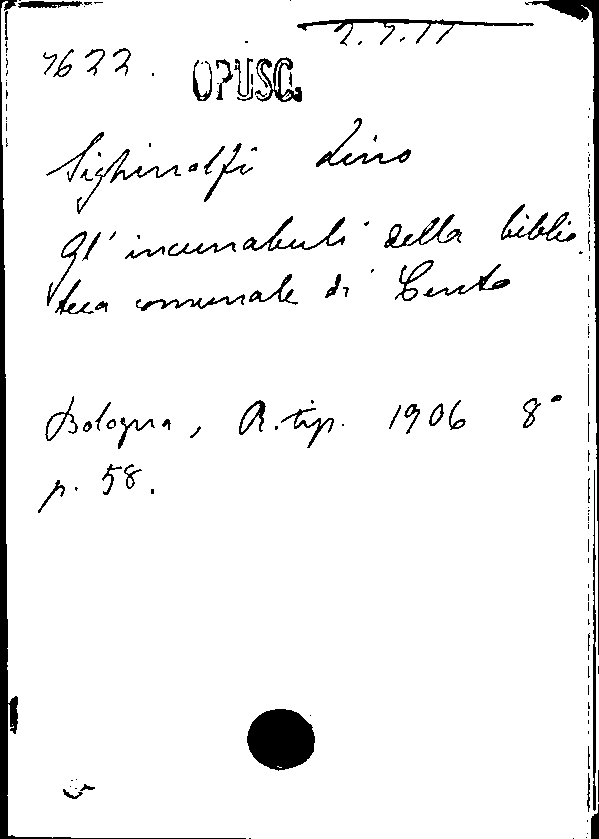 2.7.77
7622. OPUSC.
Sighinolfi Lino
Gl'incunabuli della biblio
teca comunale di Cento
Bologna, R. tip. 1906 8°
p. 58.